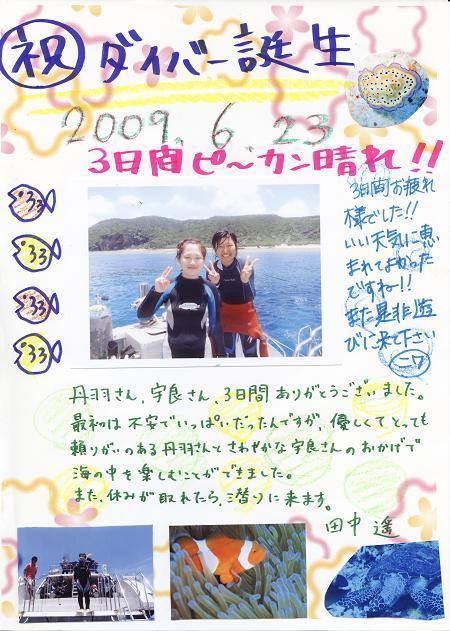 祝 ダイバー誕生
2009.6.23
3日間ピ～カン晴れ!!
33
33
33
33
3日間お疲れ
様でした!!
いい天気に恵
まれてよかった
ですねー!!
また是非遊
びに来て下さい
ニワ
丹羽さん、宇良さん、3日間ありがとうございました。
最初は不安でいっぱいだったんですが、優しくてとっても
頼りがいのある丹羽さんとさわやかな宇良さんのおかげで
海の中を楽しむことができました。
また、休みが取れたら、潜りに来ます。
田中 遥